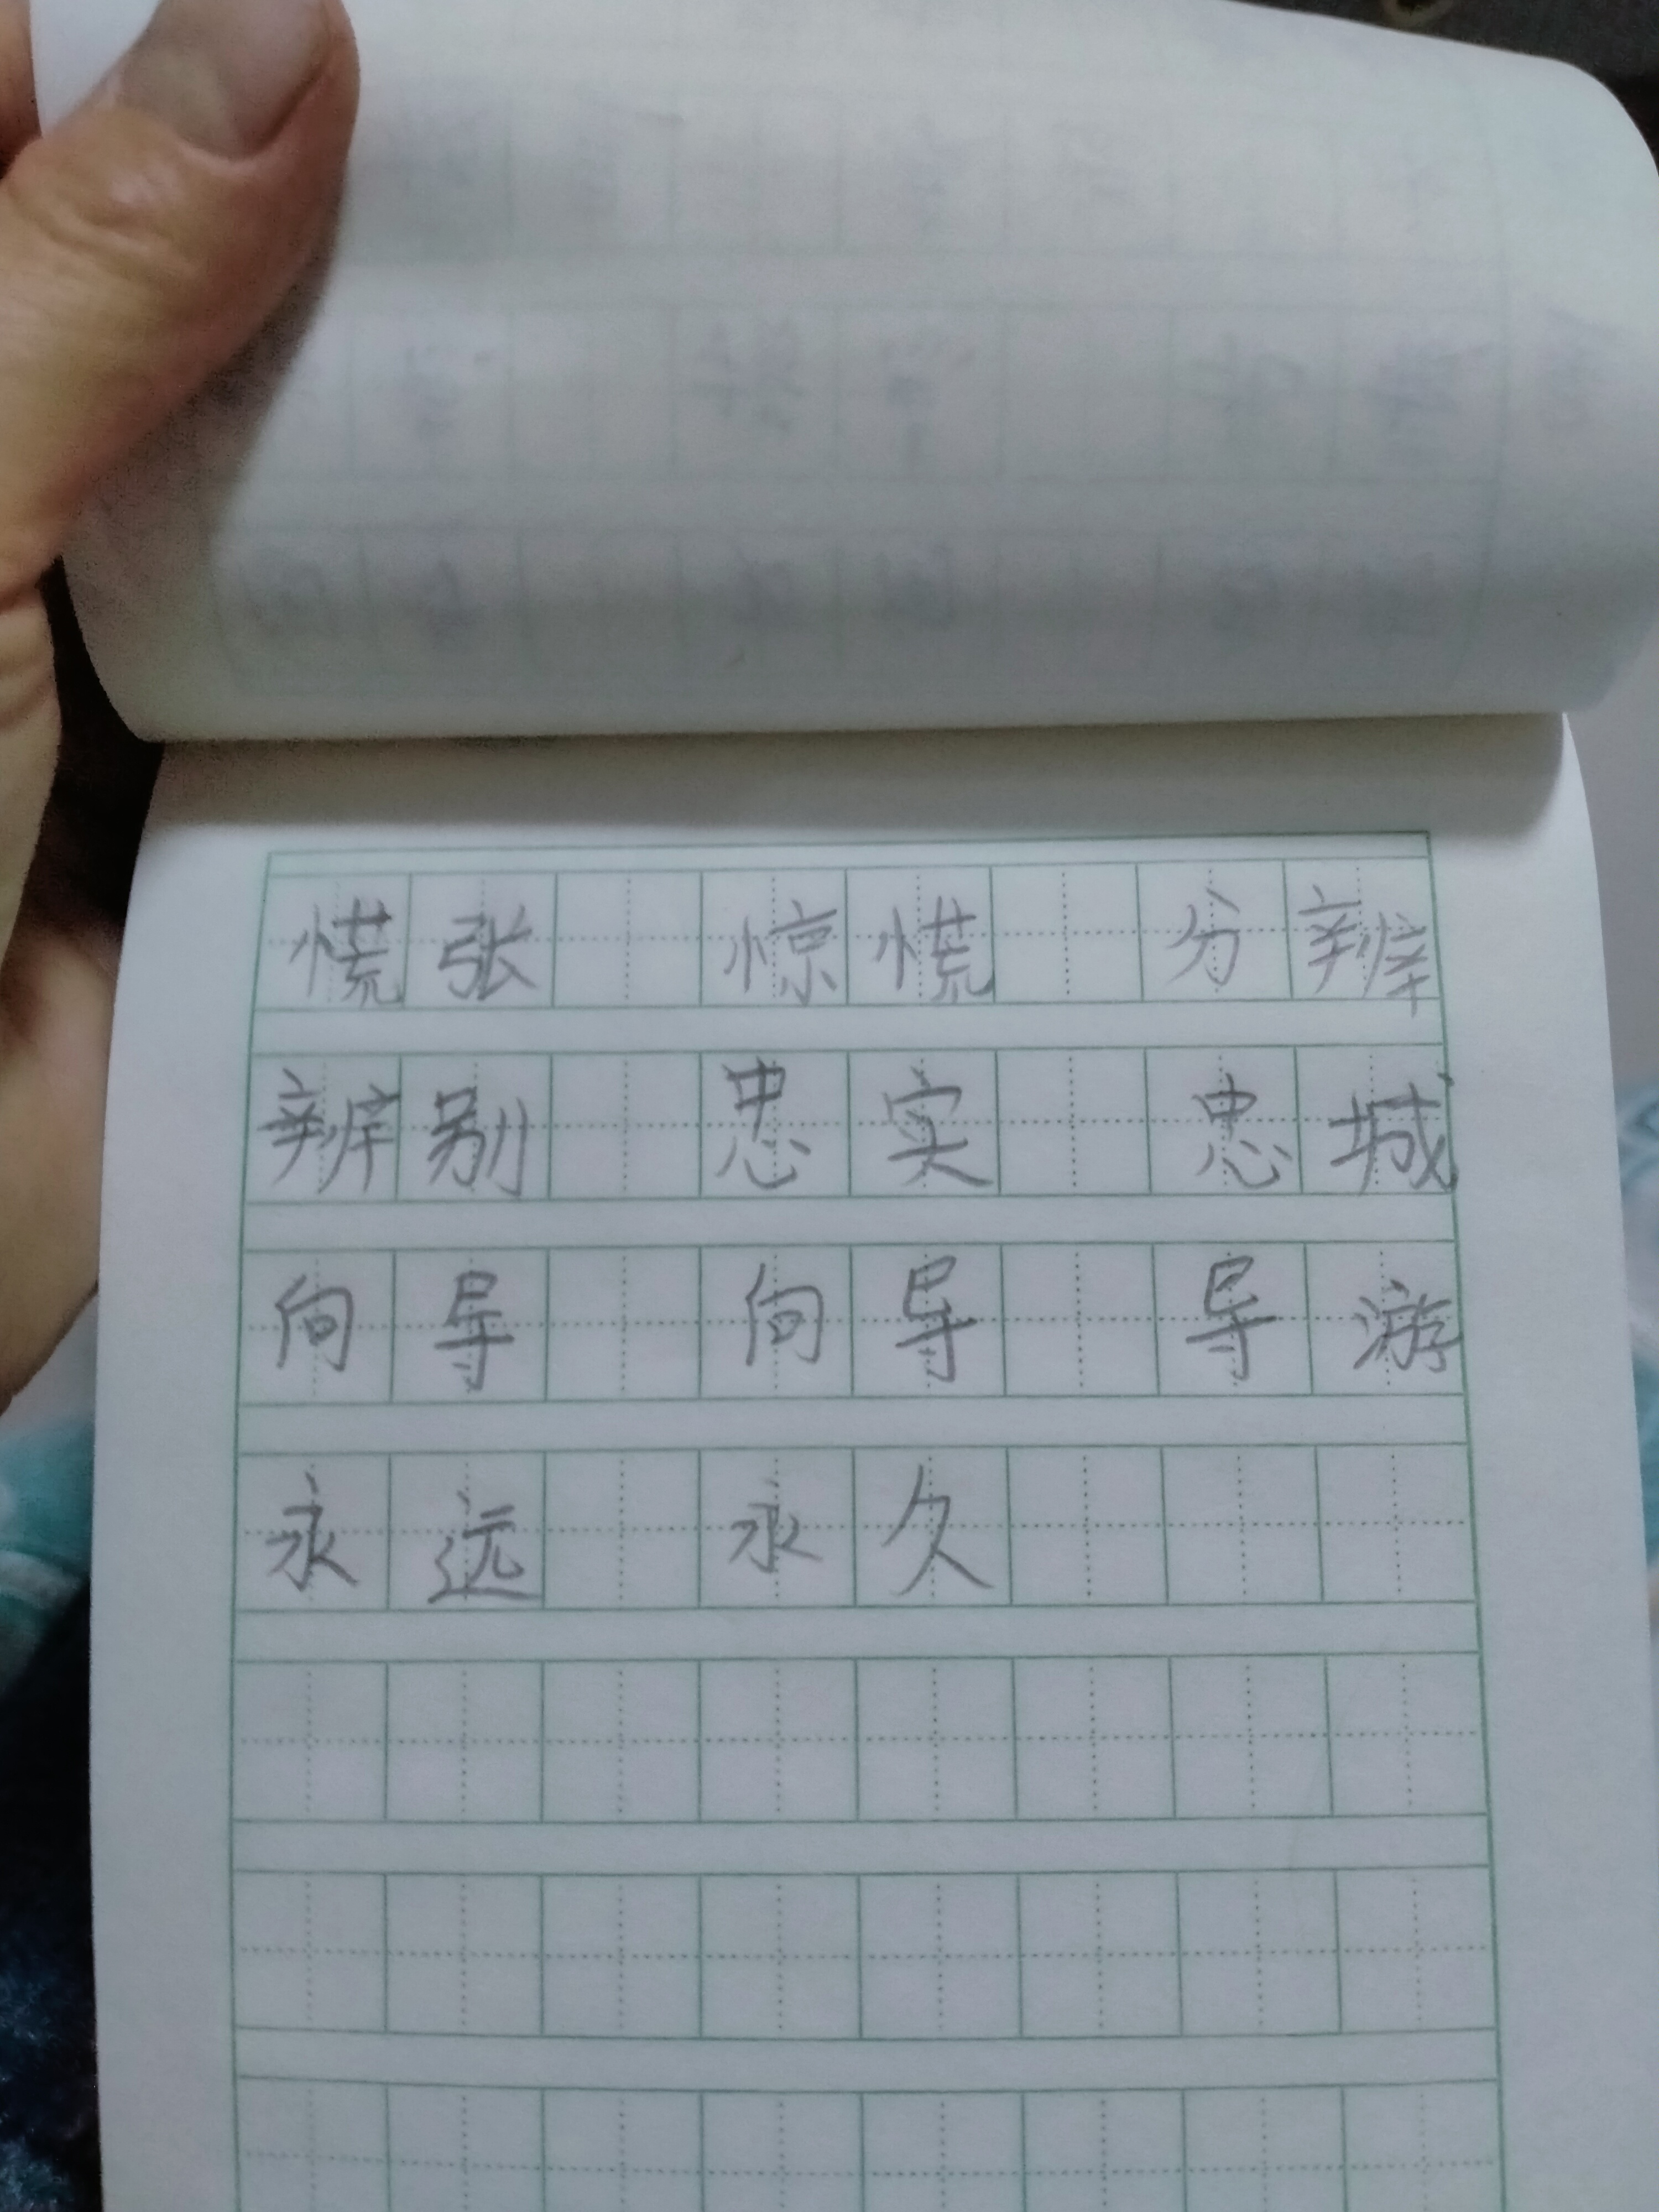 慌张 惊慌 分辨
辨别 忠实 忠城
向导 向导 导游
永远 永久